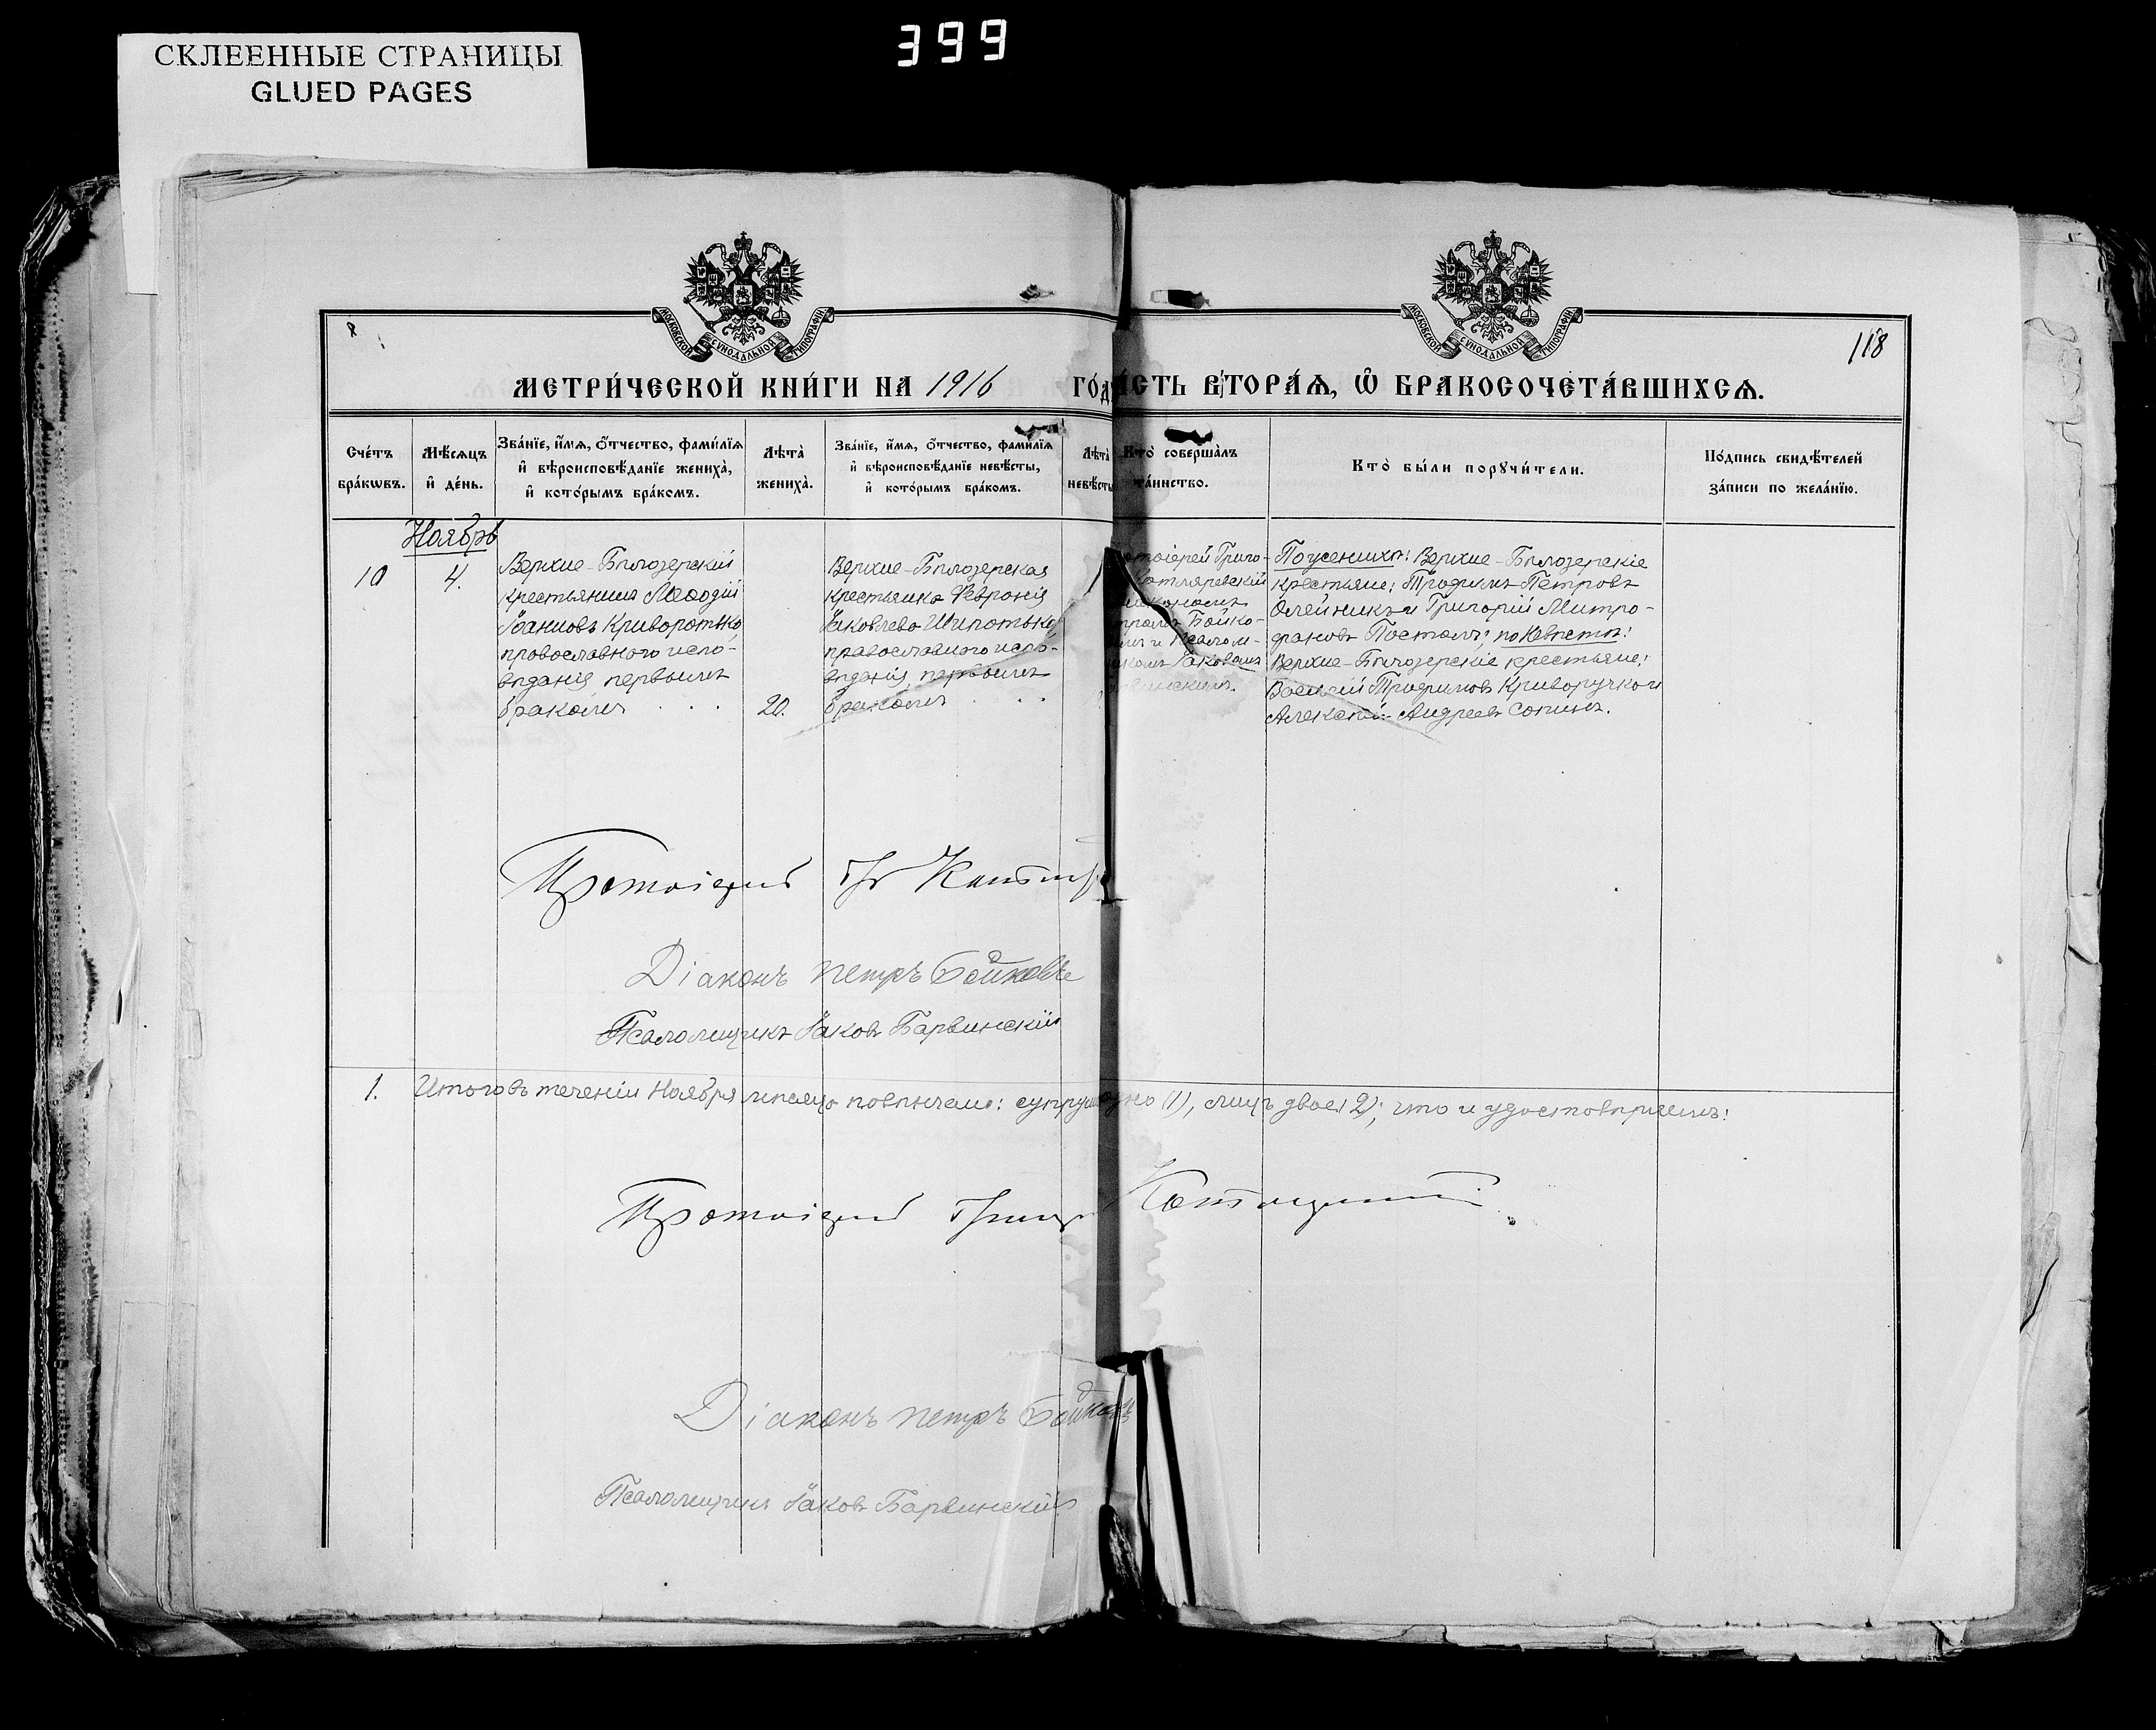 СКЛЕЕННЫЕ СТРАНИЦЫ
GLUED PAGES
399
МОСКОВСКОЙ СѴНОДАЛЬНОЙ ТИПОГРАФІИ
МОСКОВСКОЙ СѴНОДАЛЬНОЙ ТИПОГРАФІИ
118
МЕТРИ́ЧЕСКОЙ КНИ́ГИ НА 1916 ГО́Д
А́СТЬ ВТОРА́Ѧ, Ѡ҆ БРАКОСОЧЕТА́ВШИХСѦ.
Сче́тъ бра́кѡвъ.
Мѣ́сѧцъ и҆ де́нь.
Зва́нїе, и҆́мѧ, ѻ҆́тчество, фами́лїѧ и҆ вѣроисповѣ́данїе жениха̀, и҆ кото́рымъ бра́комъ.
Лѣта̀ жениха̀.
Зва́нїе, и҆́мѧ, ѻ҆́тчество, фами́лїѧ и҆ вѣроисповѣ́данїе невѣ́сты, и҆ кото́рымъ бра́комъ.
Лѣта̀ невѣ́сты
Кто̀ соверша́лъ та́инство.
Кто̀ бы́ли порꙋчи́тели.
По́дпись свидѣ́телей за́писи по жела́нїю.
Ноябрь
10
4.
Верхне-Бѣлозерскій
крестьянинъ Меѳодій
Іоанновъ Криворотько,
православнаго испо-
вѣданія, первымъ
бракомъ . . .
20.
Верхне-Бѣлозерская
крестьянка Февронія
Іаковлева Шипотько,
православнаго испо-
вѣданія, первымъ
бракомъ . .
тоіерей Григо-
Котляревскій
Бойко-
и Псалом-
Іаковомъ
По женихѣ: Верхне-Бѣлозерскіе
крестьяне: Трофимъ Петровъ
Олейникъ и Григорій Митро-
фановъ Постолъ; по невѣстѣ:
Верхне-Бѣлозерскіе крестьяне:
Василій Трофимовъ Криворучко и
Алексѣй Андреевъ Сопинъ.
Протоіерей Гр Котляр
Діаконъ Петръ Бойковъ
Псаломщикъ Іаковъ Барвинскій
1. Итого въ теченіи Ноября мѣсяца повѣнчано: супруж одно (1), лицъ двое (2); что и удостовѣряемъ:
Протоіерей Григор Котляревскій
Діаконъ Петръ Бойковъ
Псаломщикъ Іаковъ Барвинскій